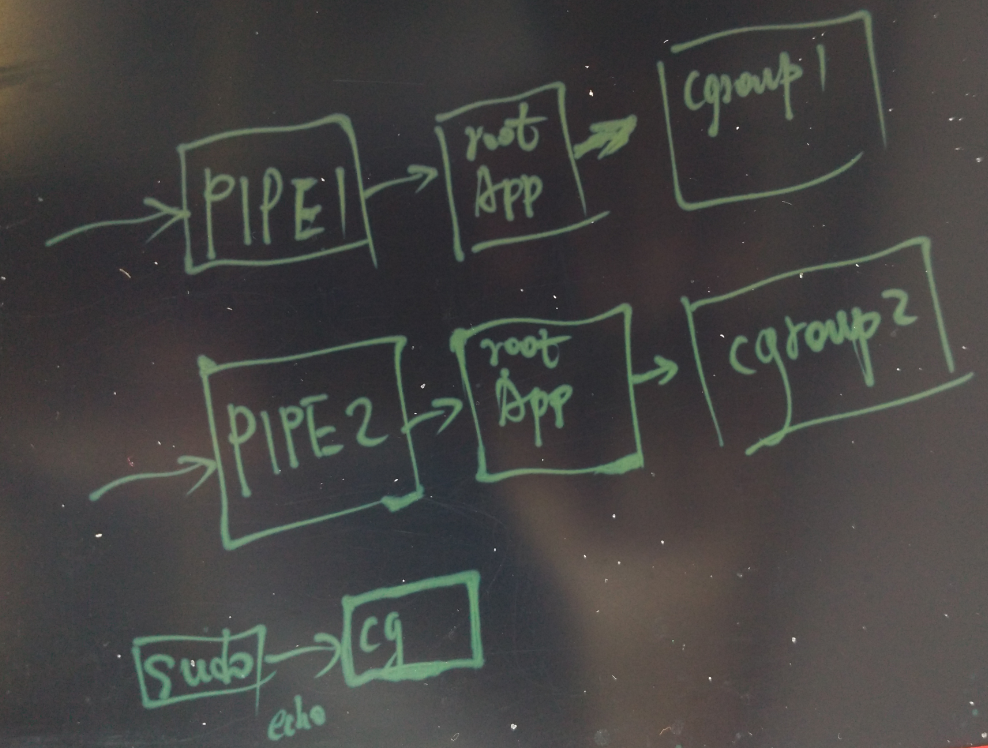 PIPE1
root
App
cgroup1
PIPE2
root
App
cgroup2
sudo
echo
cg